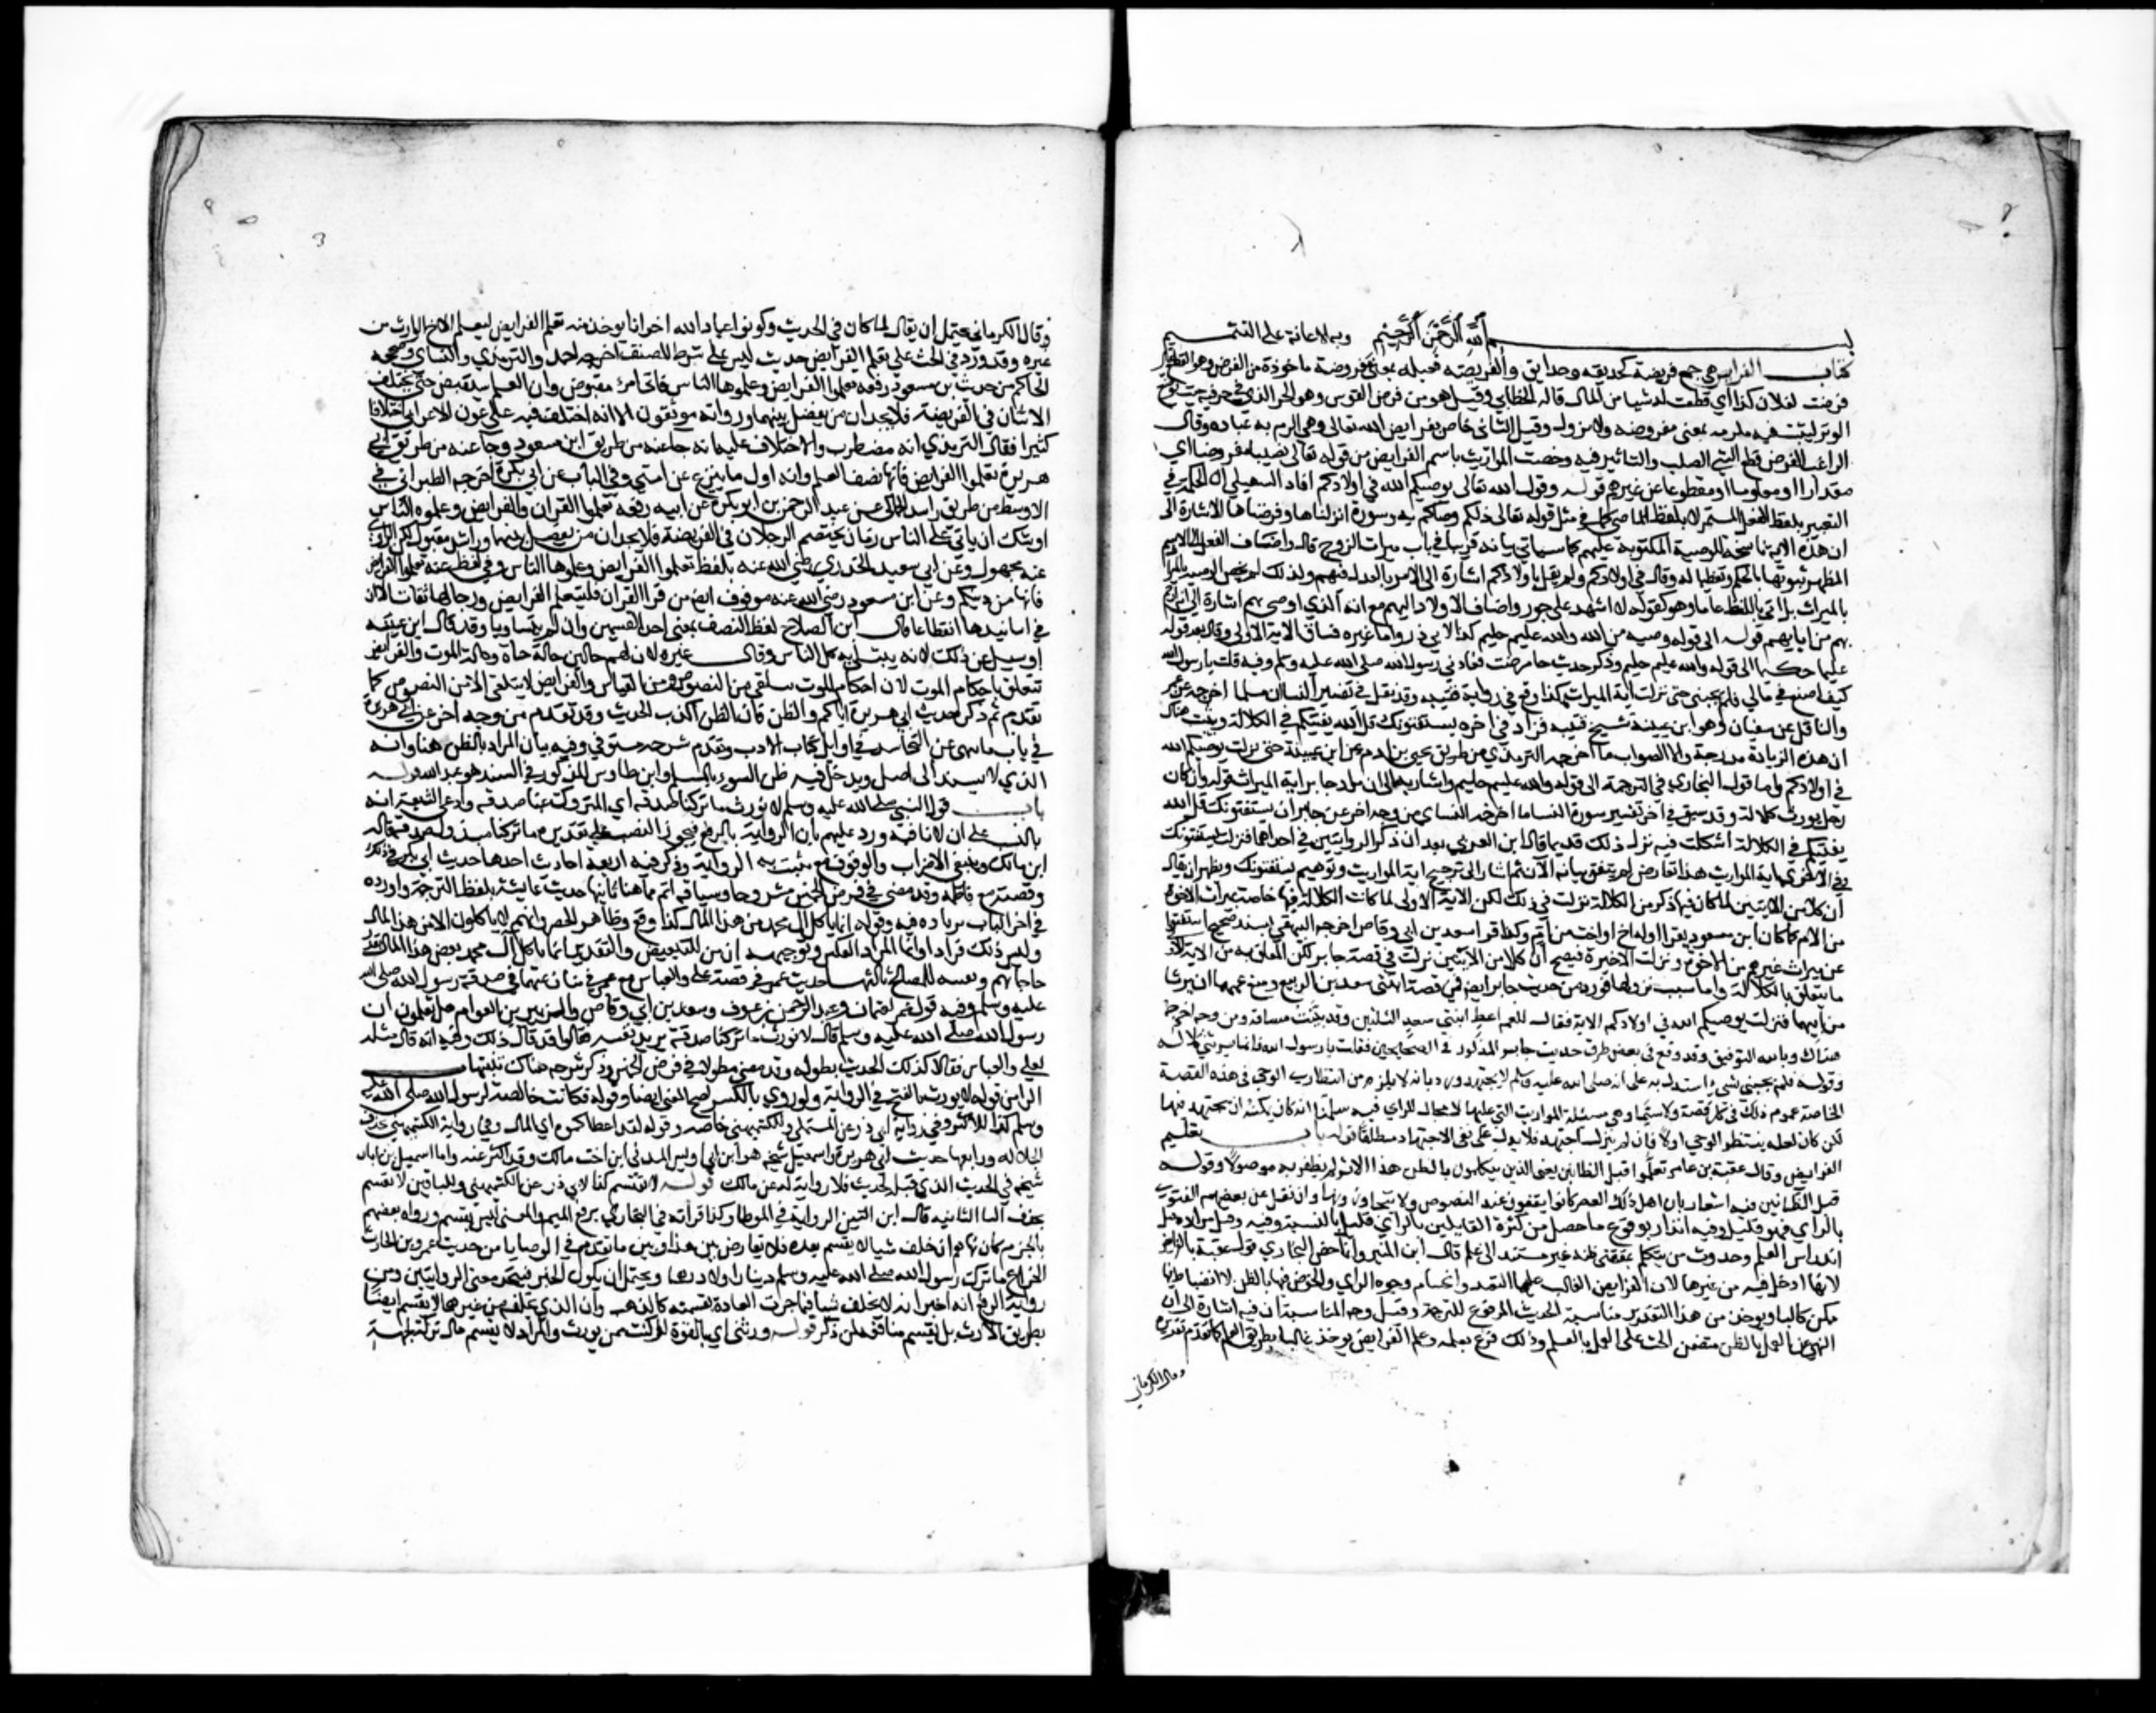 بسم الله الرحمن الرحيم وبه الاعانة على التتميم
كتاب الفرايض هي جمع فريضة كحديقه وحدايق والفريضه فعيله بمعنى مفروضة ماخوذة من الفرض وهو القطع يقال
فرضت لفلان كذا اي قطعت له شيا من المال قاله الخطابي وقيل هو من فرض القوس وهو الحز الذي في طرفيه حيث يوضع
الوتر ليثبت فيه ويلزمه بمعنى مفروضه ولا يزول وقيل الثاني خاص بفرايض الله تعالى وهي الزم به عباده وقال
الراغب الفرض قطع الشي الصلب والتاثير فيه وخصت المواريث باسم الفرايض من قوله تعالى نصيبا مفروضا اي
مقدارا او معلوما او مقطوعا عن غيرهم قوله وقول الله تعالى يوصيكم الله في اولادكم افاد السهيلي ان الحكمة في
التعبير بلفظ الفعل المستمر لا بلفظ الماضي كما في مثل قوله تعالى ذلكم وصاكم به وسورة انزلناها وفرضناها الاشارة الى
ان هذه الاية ناسخة للوصية المكتوبة عليهم كما سياتي بيانه قريبا في باب ميراث الزوج قال واضاف الفعل الى الاسم
المظهر تنويها بالحكم وتعظيما له وقال في اولادكم ولم يقل باولادكم اشارة الى الامر بالعدل فيهم ولذلك لم يخص الوصية
بالميراث بل اتى باللفظ عاما وهو كقوله لا اشهد على جور واضاف الاولاد اليهم مع انه الذي اوصى بهم اشارة الى انه ارحم
بهم من ابايهم قوله الى قوله وصيه من الله والله عليم حليم كذا لابي ذر واما غيره فساق الاية الاولى وقال بعد قوله
عليما حكيما الى قوله والله عليم حليم وذكر حديث جابر مرضت فعادني رسول الله صلى الله عليه وسلم وفيه قلت يا رسول الله
كيف اصنع في مالي فلم يجبني حتى نزلت اية الميراث هكذا وقع في رواية قتيبه وقد نقل في تفسير النسا ان مسلما اخرجه عن عمرو
والناقل عن سفيان وهو ابن عيينة شيخ قتيبه فزاد في اخره يستفتونك قل الله يفتيكم في الكلالة وبينت هناك
ان هذه الزيادة مدرجة وان الصواب ما اخرجه الترمذي من طريق يحيى بن ادم عن ابن عيينة حتى نزلت يوصيكم الله
في اولادكم واما قول البخاري في الترجمة الى قوله والله عليم حليم واشار به الى ان مراد جابر اية الميراث قوله وان كان
رجل يورث كلالة وقد سبق في آخر تفسير سورة النسا ما اخرجه النساي من وجه اخر عن جابر ان يستفتونك قل الله
يفتيكم في الكلالة اشكلت فيه نزل ذلك قديما قال ابن العربي بعد ان ذكر الروايتين في احداهما فنزلت يستفتونك
وفي الاخرى اية المواريث هذا تعارض لم يتفق بيانه الى الآن ثم اشار الى ترجيح اية المواريث وتوهيم يستفتونك ويظهر ان يقال
ان كلا من الايتين لما كان فيها ذكر من الكلالة نزلت في ذلك لكن الاية الاولى لما كانت الكلالة فيها خاصة بميراث الاخوة
من الام كما كان ابن مسعود يقرا وله اخ او اخت من ام وكذا قرا سعد بن ابي وقاص اخرجه البيهقي بسند صحيح استفتوا
عن ميراث غيرهم من الاخوة ونزلت الاخيرة فيصح ان كلا من الايتين نزلت في قصة جابر لكن المتعلق به من الاية الاولى
ما يتعلق بالكلالة واما سبب نزولها فورد من حديث جابر ايضا في قصة ابنتي سعد بن الربيع ومنع عمهما ان يرثا
من ابيهما فنزلت يوصيكم الله في اولادكم الاية فقال للعم اعط ابنتي سعد الثلثين وقد بينت مساقه من وجه اخر
هناك وبالله التوفيق وقد وقع في بعض طرق حديث جابر المذكور في الصحيحين فقلت يا رسول الله انما يرثني كلاله
وقوله فلم يجبني بشيء استدل به على انه صلى الله عليه وسلم لا يجتهد ورد بانه لا يلزم من انتظاره الوحي في هذه القصة
الخاصة عموم ذلك في كل قصة ولا سيما وهي مسئلة المواريث التي غالبها لا مجال للراي فيه سلمنا انه كان يمكنه ان يجتهد فيها
لكن كان لعله ينتظر الوحي اولا فان لم ينزل اجتهد فلا يدل على نفي الاجتهاد مطلقا قوله باب تعليم
الفرايض وقال عقبة بن عامر تعلموا قبل الظانين يعني الذين يتكلمون بالظن هذا الاثر لم نظفر به موصولا وقوله
قبل الظانين فيه اشعار بان اهل ذلك العصر كانوا يقفون عند النصوص ولا يتجاوزونها وان نقل عن بعضهم الفتوى
بالراي فهو قليل وفيه انذار بوقوع ما حصل من كثرة القايلين بالراي قليل بالنسبة وفيه وقيل مراده قبل
اندراس العلم وحدوث من يتكلم بمقتضى ظنه غير مستند الى علم قال ابن المنير وانما خص البخاري قول عقبة بالفرايض
لانها ادخل فيه من غيرها لان الفرايض الغالب عليها التعبد وانحسام وجوه الراي والخوض فيها بالظن لا انضباط له
ممكن كالبا ويوخذ من هذا التقدير مناسبة الحديث المرفوع للترجمة وقيل وجه المناسبة ان فيه اشارة الى ان
النهي عن العمل بالظن متضمن الحث على العمل بالعلم وذلك فرع تعلمه وعلم الفرايض يوخذ غالبا بطريق العلم كما تقدم تقديره
وقال الكرماني
وقال الكرماني يحتمل ان يقال لما كان في الحديث وكونوا عباد الله اخوانا يوخذ منه تعلم الفرايض ليعلم الاخ الوارث من
غيره وقد ورد في الحث على تعلم الفرايض حديث ليس على شرط المصنف اخرجه احمد والترمذي والنساي وصححه
الحاكم من حديث بن مسعود رفعه تعلموا الفرايض وعلموها الناس فاني امرؤ مقبوض وان العلم سيقبض حتى يختلف
الاثنان في الفريضة فلا يجدان من يفصل بينهما ورواته موثقون الا انه اختلف فيه على عوف الاعرابي اختلافا
كثيرا فقال الترمذي انه مضطرب والاختلاف عليه انه جا عنه من طريق ابن مسعود وجا عنه من طريق ابي
هريرة تعلموا الفرايض فانها نصف العلم وانه اول ما ينزع من امتي وفي الباب عن ابي بكرة اخرجه الطبراني في
الاوسط من طريق راشد الحماني عن عبد الرحمن بن ابي بكرة عن ابيه رفعه تعلموا القران والفرايض وعلموه الناس
اوشك ان ياتي على الناس زمان يختصم الرجلان في الفريضة فلا يجدان من يفصل بينهما وراشد مقبول لكن الراوي
عنه مجهول وعن ابي سعيد الخدري رضي الله عنه بلفظ تعلموا الفرايض وعلموها الناس وفي لفظ عنه تعلموا الفرايض
فانها من دينكم وعن ابن مسعود رضي الله عنه موقوف ايضا من قرا القران فليتعلم الفرايض ورجالها ثقات الا ان
في اسانيدها انقطاعا قال ابن الصلاح لفظ النصف بمعنى احد القسمين وان لم يتساويا وقد قال ابن عيينه
اذ سيل عن ذلك لانه يبتلى به كل الناس وقال غيره لان لهم حالين حالة حياة وحالة الموت والفرايض
تتعلق باحكام الموت لان احكام الموت تتلقى من النصوص ومن القياس والفرايض لا يتلقى الا من النصوص كما
تقدم ثم ذكر حديث ابي هريرة اياكم والظن فان الظن اكذب الحديث وقد تقدم من وجه اخر عن ابي هريرة
في باب ما ينهى عن التحاسد في اوايل كتاب الادب وتقدم شرحه مستوفي وفيه بيان المراد بالظن هنا وانه
الذي لا يستند الى اصل ويدخل فيه ظن السوء بالمسلم وابن طاوس المذكور في السند هو عبد الله قوله
باب قول النبي صلى الله عليه وسلم لا نورث ما تركنا صدقه اي المتروك عنا صدقه وادعى الشيعة انه
بالنصب على ان ما نافيه ورد عليهم بان الرواية بالرفع فيجوز النصب على تقدير ما تركنا مبذول صدقة قاله
ابن مالك وينبغي الاضراب والوقوف مع ما ثبت به الرواية وذكر فيه اربعة احاديث احدها حديث ابي بكر في ذلك
وقصته مع فاطمة وقد مضى في فرض الخمس مشروحا وسياقه اتم مما هنا ثانيها حديث عايشة بلفظ الترجمة واورده
في اخر الباب بزياده فيه وقوله انما ياكل ال محمد من هذا المال كذا وقع وظاهر الحصر وانهم لا ياكلون الا من هذا المال
وليس ذلك مرادا وانما المراد العكس وتوجيهه ان من للتبعيض والتقدير انما ياكل ال محمد بعض هذا المال بقدر
حاجاتهم وبقيته للمصالح ثالثها حديث عمر في قصة علي والعباس مع عمر في منازعتهما في صدقة رسول الله صلى الله
عليه وسلم وفيه قول عمر لعثمان وعبد الرحمن بن عوف وسعد بن ابي وقاص والزبير بن العوام هل تعلمون ان
رسول الله صلى الله عليه وسلم قال لا نورث ما تركنا صدقة يريد نفسه فقالوا قد قال ذلك وفيه انه قال مثله
لعلي والعباس فقالا كذلك الحديث بطوله وقد مضى مطولا في فرض الخمس وذكر شرحه هناك تنبيهات
الراس قوله لا نورث بالفتح في الرواية ولو روي بالكسر لصح المعنى ايضا وقوله فكانت خالصة لرسول الله صلى الله عليه
وسلم كذا للاكثر وفي رواية ابي ذر عن المستملي والكشميهني خاصه وقوله لقد اعطاكموه اي المال وفي رواية الكشميهني بحذف
الجلاله ورابعها حديث ابي هريرة واسمعيل شيخه هو ابن ابي اويس المدني ابن اخت مالك وقد اكثر عنه واما اسمعيل بن ابان
شيخه في الحديث الذي قبله بحديث فلا رواية له عن مالك قوله لا تقتسم كذا لابي ذر عن الكشميهني وللباقين لا تقسم
بحذف التا الثانيه قال ابن التين الرواية في الموطا وكذا قراته في البخاري برفع الميم والمعنى ليس يقسم ورواه بعضهم
بالجزم كانه نهاهم ان خلف شيا لا يقسم بعده فلا تعارض بين هذا وبين ما تقدم في الوصايا من حديث عمرو بن الحارث
الخزاعي ما ترك رسول الله صلى الله عليه وسلم دينارا ولا درهما ويحتمل ان يكون الخبر فيتحد معنى الروايتين ومن
رواية الرفع انه اخبر انه لا يخلف شيا فما جرت العادة بقسمته كالذهب وان الذي يخلفه من غيرهما لا يقسم ايضا
بطريق الارث بل يقسم منافعه لمن ذكر قوله ورثتي اي بالقوة لو كنت ممن يورث والمراد لا يقسم مال تركته لجهة